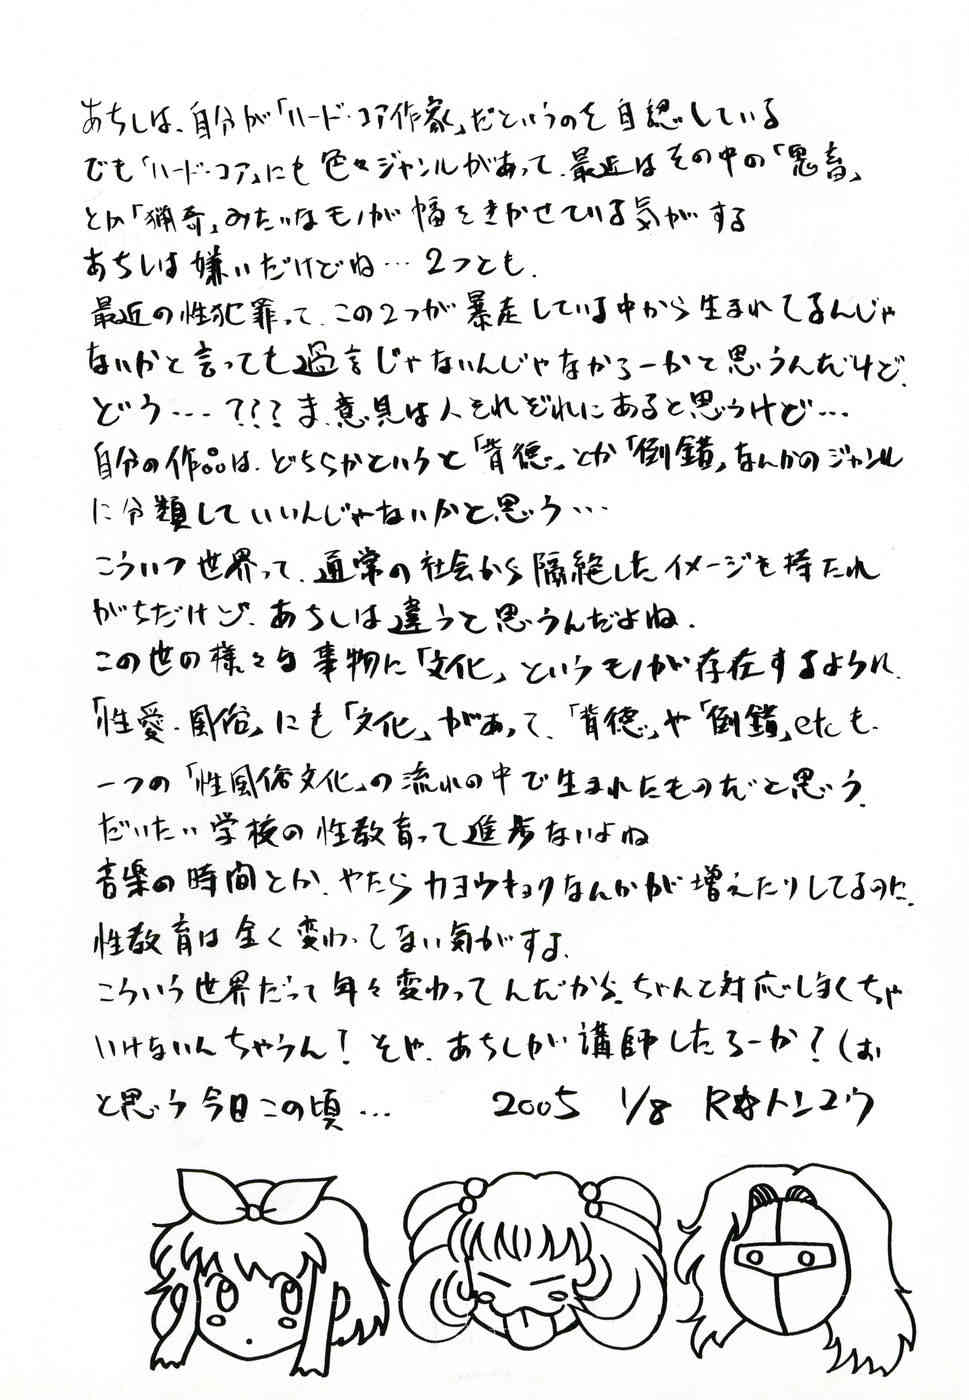 あちしは、自分が「ハード・コア作家」だというのを自認している
でも「ハード・コア」にも色々ジャンルがあって、最近はその中の「鬼畜」
とか「猟奇」みたいなモノが幅をきかせている気がする
あちしは嫌いだけどね…2つとも、
最近の性犯罪って、この2つが暴走している中から生まれてるんじゃ
ないかと言っても過言じゃないんじゃなかろーかと思うんだけど、
どう…???ま、意見は人それぞれにあると思うけど…
自分の作品は、どちらかというと「背徳」とか「倒錯」なんかのジャンル
に分類していいんじゃないかと思う…
こういつ世界って、通常の社会から隔絶したイメージを持たれ
がちだけど、あちしは違うと思うんだよね、
この世の様々な事物に「文化」というモノが存在するように、
「性愛・風俗」にも「文化」があって、「背徳」や「倒錯」etcも、
一つの「性風俗文化」の流れの中で生まれたものだと思う、
だいたい学校の性教育って進歩ないよね
音楽の時間とか、やたらカヨウキョクなんかが増えたりしてるのに、
性教育は全く変わってない気がする、
こういう世界だって年々変わってんだから、ちゃんと対応しまくちゃ
いけないんちゃうん!そや、あちしが講師したろーか?(お
と思う今日この頃…
2005 1/8